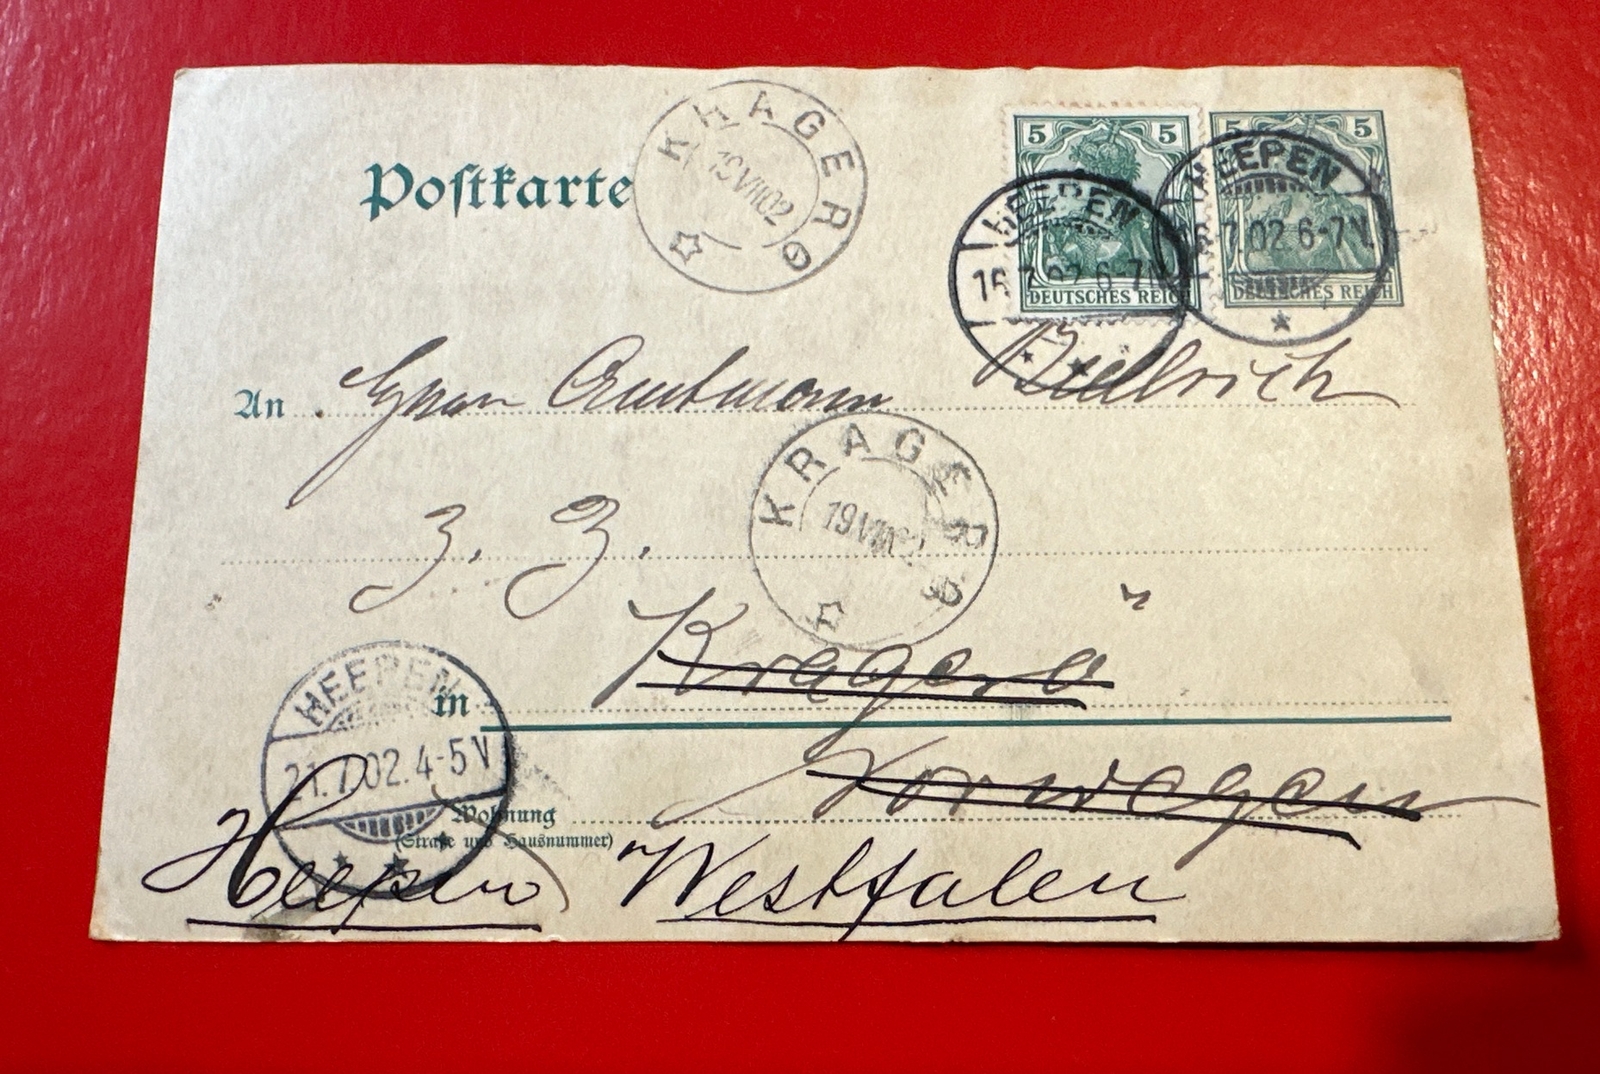 Postkarte
KRAGERØ
19 VII 02
5 5
DEUTSCHES REICH
5 5
DEUTSCHES REICH
HEEPEN
16.7.02 6-7N.
HEEPEN
16.7.02 6-7N.
An Herrn Amtmann
z. Z.
KRAGERØ
19 VII 02
in Kragerö
Norwegen
HEEPEN
21.7.02.4-5V
Wohnung
(Straße und Hausnummer)
Heepen Westfalen